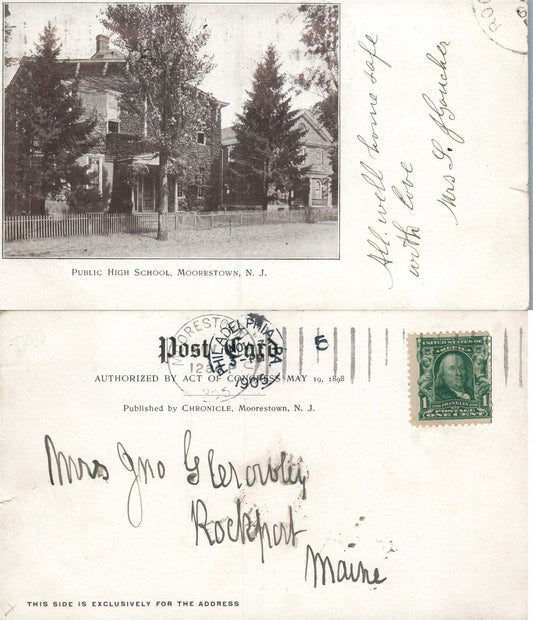 ROC
All well home safe
with love
Mrs L J Goucher
PUBLIC HIGH SCHOOL, MOORESTOWN, N. J.
MOORESTO
PHILADELPHIA, PA.
NOV
1905
5
Post Card
AUTHORIZED BY ACT OF CONGRESS MAY 19, 1898
Published by CHRONICLE, Moorestown, N. J.
UNITED STATES OF
AMERICA
FRANKLIN
1 POSTAGE 1
ONE CENT
Mrs Jno G Crowley
Rockport
Maine
THIS SIDE IS EXCLUSIVELY FOR THE ADDRESS